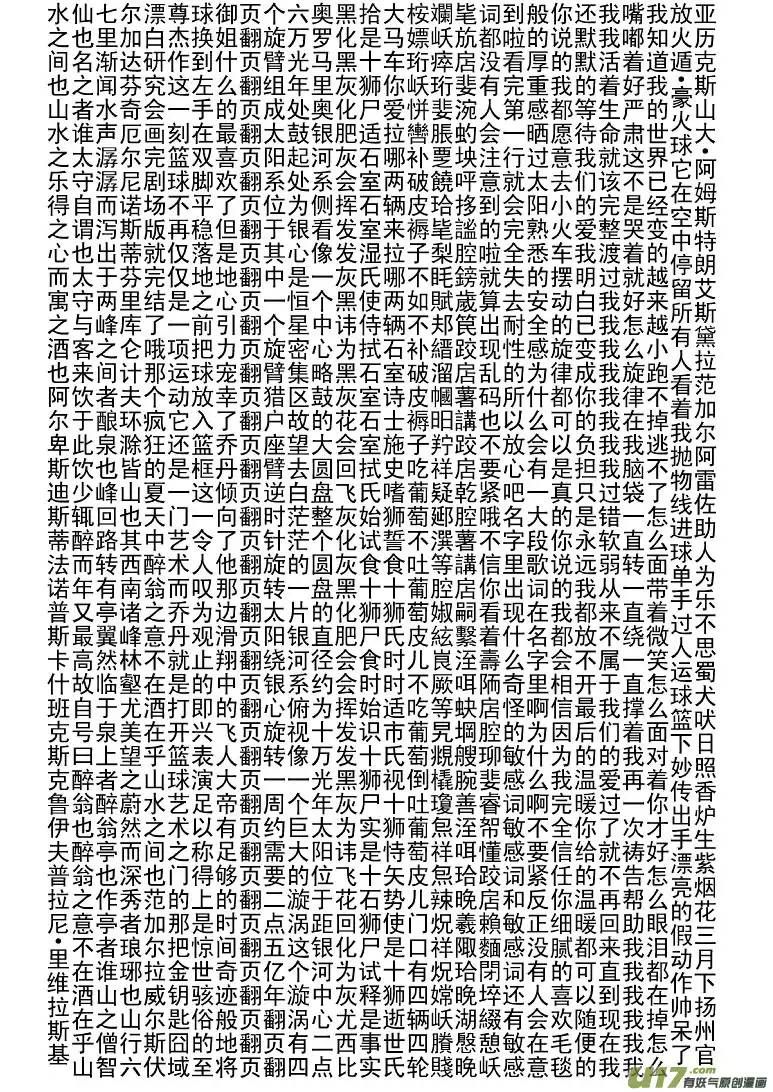 亚历克斯山大·阿姆斯特朗艾斯黛拉范加尔阿雷佐助人为乐不思蜀犬吠日照香炉生紫烟花三月下扬州官
放火遁·豪火球它在空中停留所有人看着我抛物线进球单手过人运球篮下妙传出手漂亮的假动作帅呆了
我知道我的世界已经变的越来越小跑不掉逃不了怎么面带着微笑怎么面对着你才好怎么眼泪都在掉怎么
嘴嘟着好严肃这不是哭着就好怎么旋律在我脑袋一直转一直绕一直撑着我再一次祷告帮助我我我我我
我我活着生命就该完整渡过我我我我我我我过错软弱从来不属于我们的爱过了就不再回来直到现在我
还默默的等待我们的爱我明白已变成你的负担只是永远我都放不开最后的温暖你给的温暖都可以随便的
你说的我都愿意去小火车摆动的旋律都可以是真的你说的我都会相信因为我完全信任你细腻的喜欢毛毯
般的厚重感晒过太阳熟悉的安全感为什么会有一大段歌词在名字里啊为什么啊不要紧反正没有人会在意
到啦看完第一行就会完全失去耐性的所以放心吧名字里出现什么奇怪的敏感词敏感词和敏感词还有敏感
词都没有人会注意到的啦就算出现乱码也不要紧哦不信你看着
补破皮褥子不如不补破皮褥子吃葡萄不吐葡萄皮儿不吃葡萄倒吐葡萄皮儿门口有四辆四轮
大马车你爱拉哪两辆来拉哪两辆石室诗士施史嗜狮誓食十狮氏时时适市氏视十狮恃矢势使是十狮逝世氏
拾是十狮尸适石室石室湿氏使侍拭石室石室拭氏始试食十狮尸食时始识十狮尸实是十石狮尸试释是事实
黑化黑灰化肥灰会挥发发灰黑讳为黑灰花会回飞灰化黑化肥会会挥发发黑灰为讳飞花回化为灰尤西比
奥罗马里奥银河系侧看像一个中心略鼓的大圆盘整个圆盘的直径约为十万光年太阳位于距银河中心二点
六万光年处鼓起处为银心是恒星密集区故望去白茫茫的一片银河系俯视像一个巨大的漩涡这个漩涡有四
个旋臂组成太阳系位于其中一个旋臂猎户座臂逆时针旋转太阳绕银心旋转一周约需要二点五亿年翻页翻
页翻页翻页翻页翻页翻页翻页翻页翻页翻页翻页翻页翻页翻页翻页翻页翻页翻页翻页翻页翻页翻页翻页
御姐什么的最喜欢了但是地心引力宠幸了乔丹倾向了他那边滑翔中的飞人大帝有足够的时间奇迹般地将
球换到左手在双脚平稳落地之前把球放入篮框这一令人叹为观止的即兴表演足以称得上是惊世骇俗的至
尊杰作这一刻篮球不再仅仅是一项运动它还是一门艺术而乔丹就是打开篮球艺术之门的那把金钥匙囧域
漂白研究会画完剧场版就完结了哦那个疯狂的夏天中醉翁之意不在酒在乎山水之间也范加尔拉威尔斯伏
尔加达芬奇厄尔尼诺斯蒂芬里库仑计夫环滁皆山也其西南诸峰林壑尤美望之蔚然而深秀者琅琊也山行六
七里渐闻水声潺潺而泻出于两峰之间者酿泉也峰回路转有亭翼然临于泉上者醉翁亭也作亭者谁山之僧智
仙也名之者谁太守自谓也太守与客来饮于此饮少辄醉而年又最高故自号曰醉翁也醉翁之意不在酒在乎山
水之间也山水之乐得之心而寓之酒也阿尔卑斯迪斯蒂法诺普斯卡什班克斯克鲁伊夫普拉尼·里维拉斯基
u17.com
有妖气原创漫画